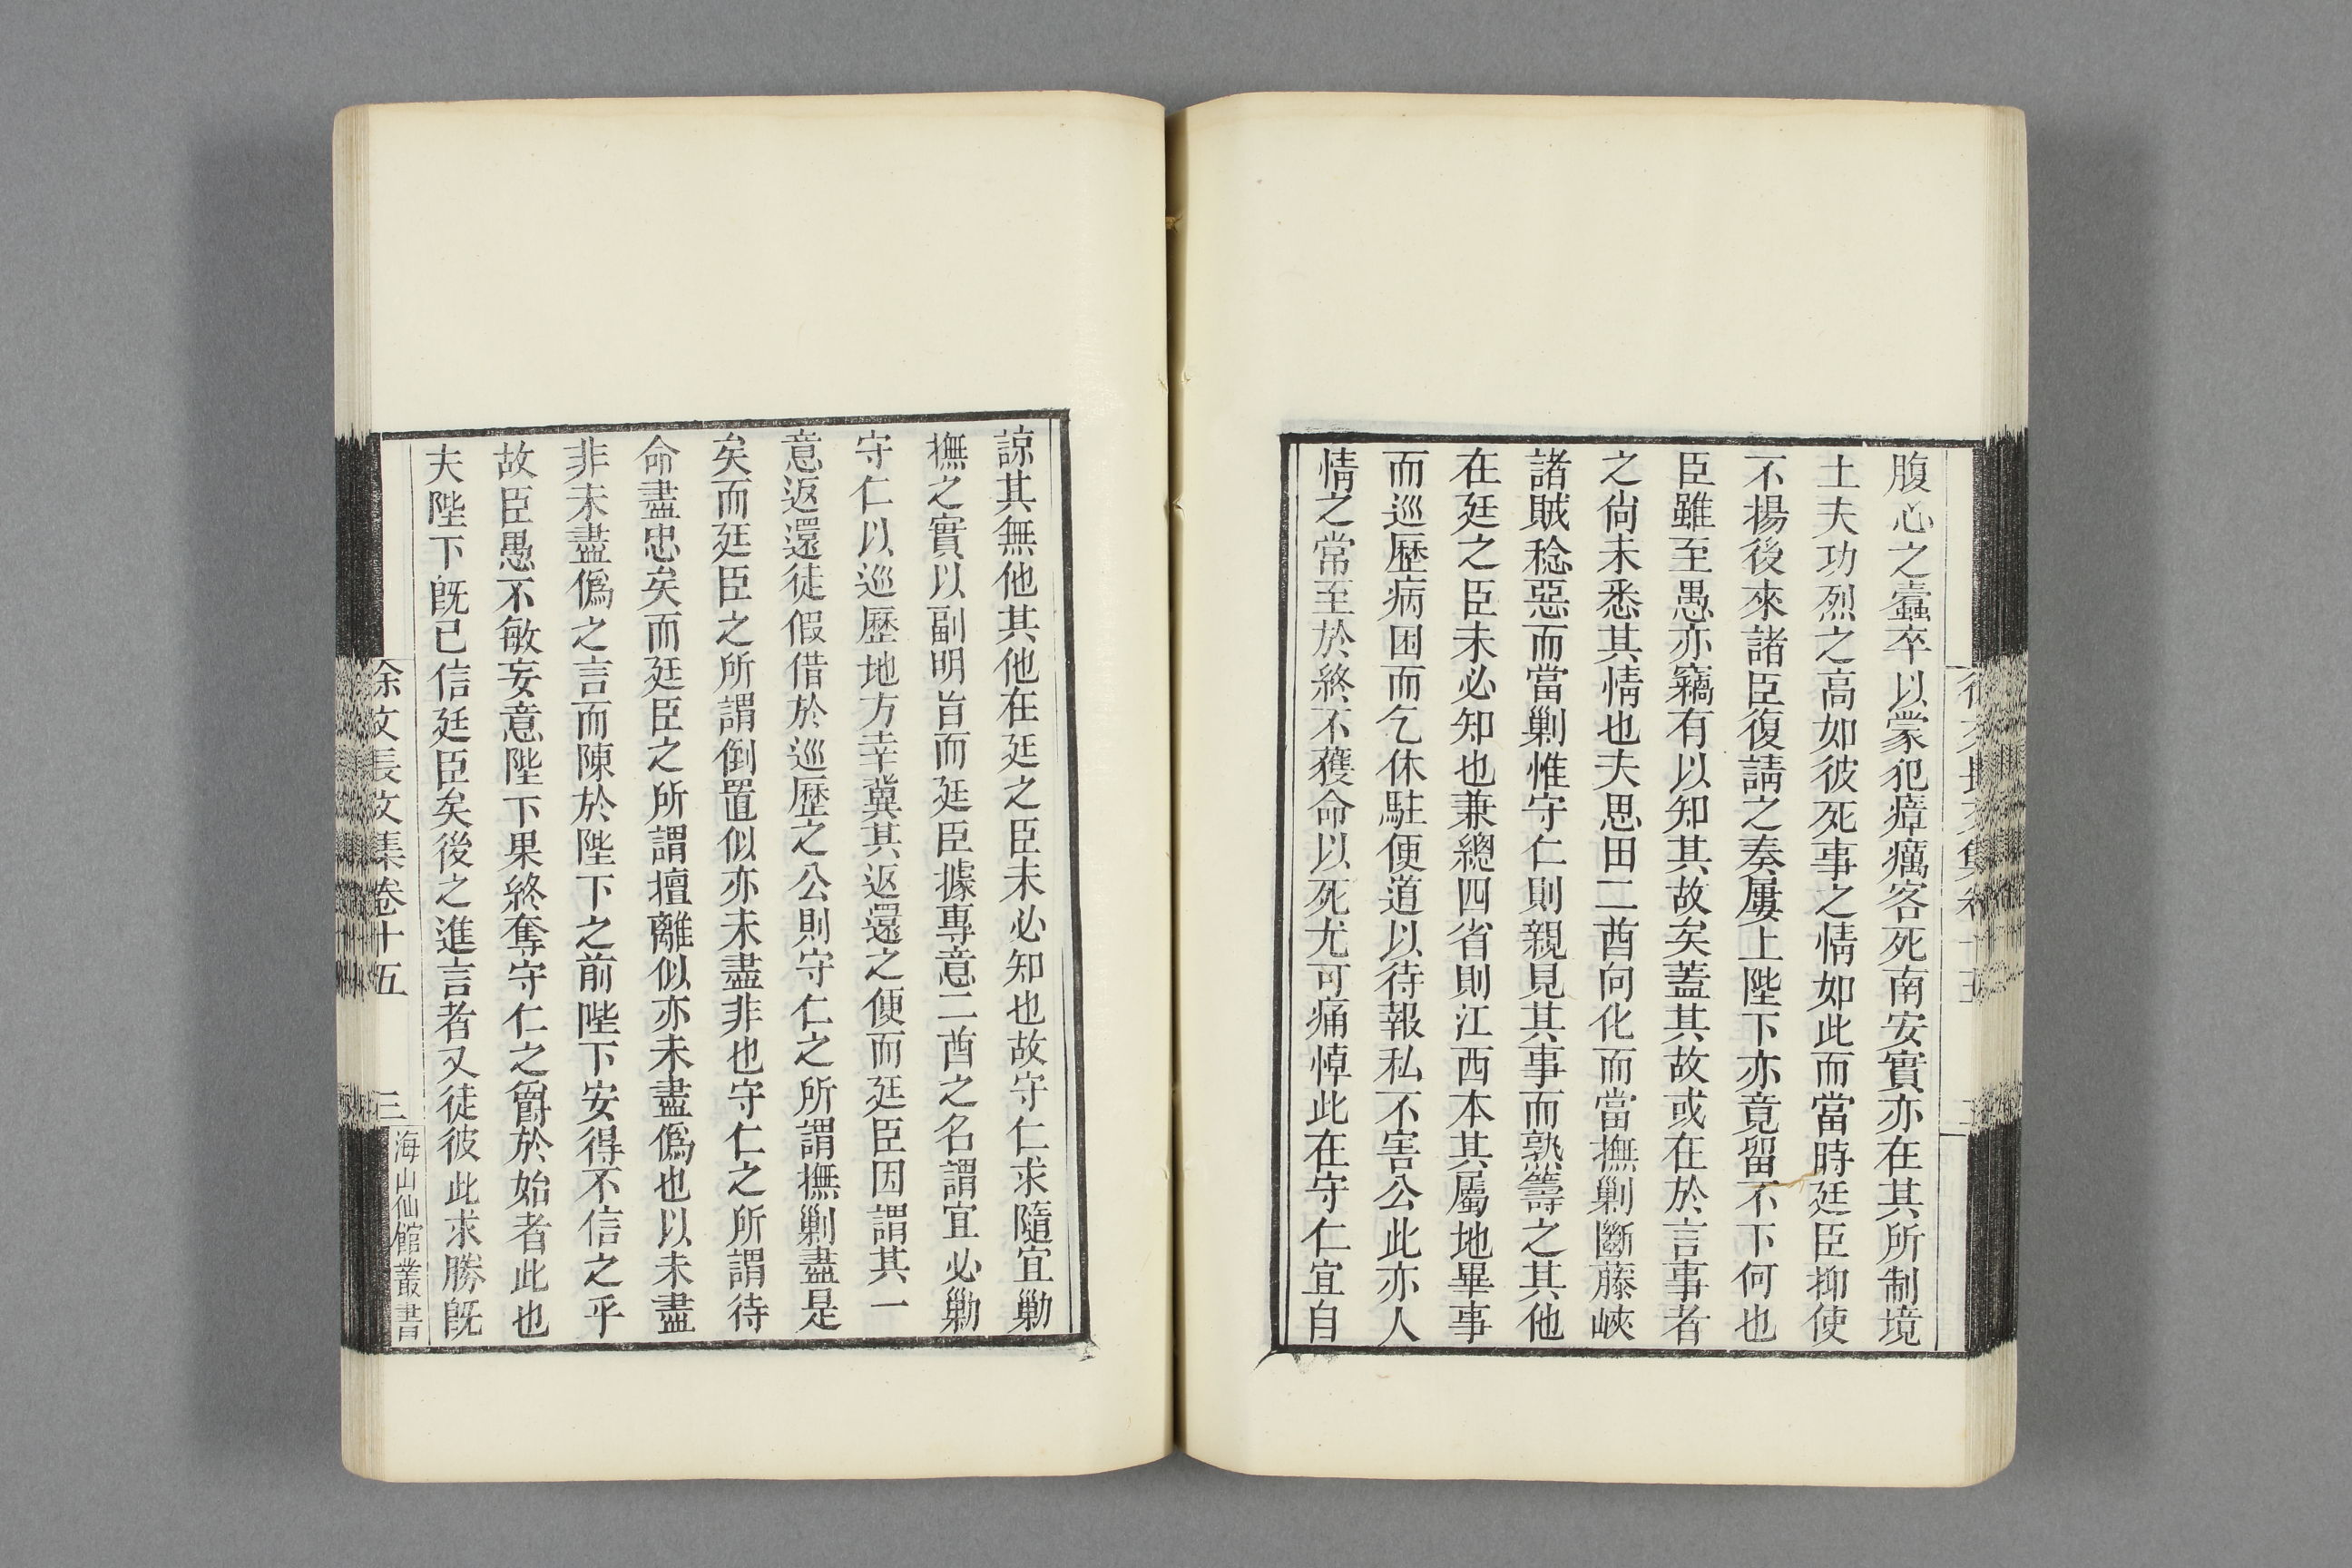 腹心之蠹卒以蒙犯瘴癘客死南安實亦在其所制境
土夫功烈之高如彼死事之情如此而當時廷臣抑使
不揚後來諸臣復請之奏屢上陛下亦竟留不下何也
臣雖至愚亦竊有以知其故矣蓋其故或在於言事者
之尙未悉其情也夫思田二酋向化而當撫剿斷藤峽
諸賊稔惡而當剿惟守仁則親見其事而熟籌之其他
在廷之臣未必知也兼總四省則江西本其屬地畢事
而巡歷病困而乞休駐便道以待報私不害公此亦人
情之常至於終不獲命以死尤可痛悼此在守仁宜自
諒其無他其他在廷之臣未必知也故守仁求隨宜勦
撫之實以副明旨而廷臣據專意二酋之名謂宜必勦
守仁以巡歷地方幸冀其返還之便而廷臣因謂其一
意返還徒假借於巡歷之公則守仁之所謂撫剿盡是
矣而廷臣之所謂倒置似亦未盡非也守仁之所謂待
命盡忠矣而廷臣之所謂擅離似亦未盡僞也以未盡
非未盡僞之言而陳於陛下之前陛下安得不信之乎
故臣愚不敏妄意陛下果終奪守仁之爵於始者此也
夫陛下旣已信廷臣矣後之進言者又徒彼此求勝旣
徐文長文集卷十五
三
海山仙館叢書